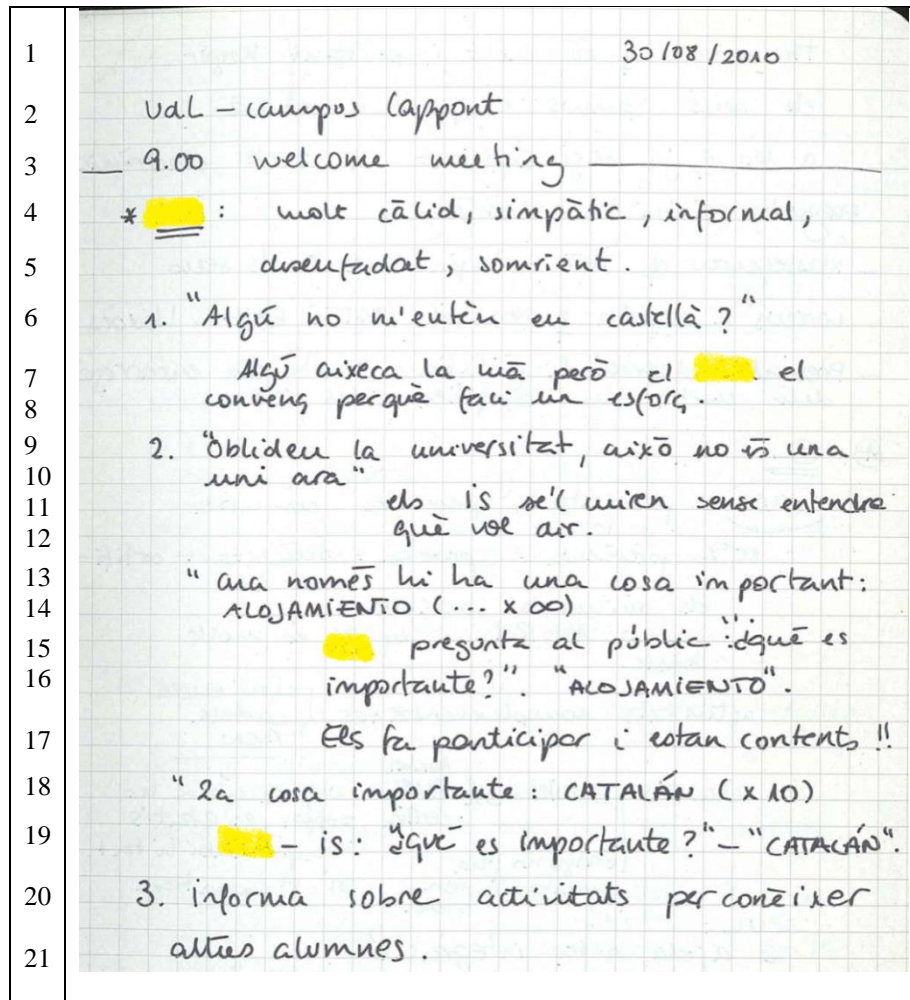 1 30/08/2010
2 UdL – campus Cappont
3 9.00 welcome meeting
4 * : molt càlid, simpàtic, informal,
5 desenfadat, somrient.
6 1. "Algú no m'entèn en castellà?"
7 Algú aixeca la mà però el el
8 convenç perquè faci un esforç.
9 2. "Oblideu la universitat, això no és una
10 uni ara"
11 els is se'l miren sense entendre
12 què vol dir.
13 " ara només hi ha una cosa important:
14 ALOJAMIENTO (... x ∞)
15 pregunta al públic: "¿qué es
16 importante?". "ALOJAMIENTO".
17 Els fa participar i estan contents!!
18 "2a cosa importante: CATALÁN (x 10)
19 – is: "¿qué es importante?" – "CATALÁN".
20 3. informa sobre activitats per conèixer
21 altres alumnes.